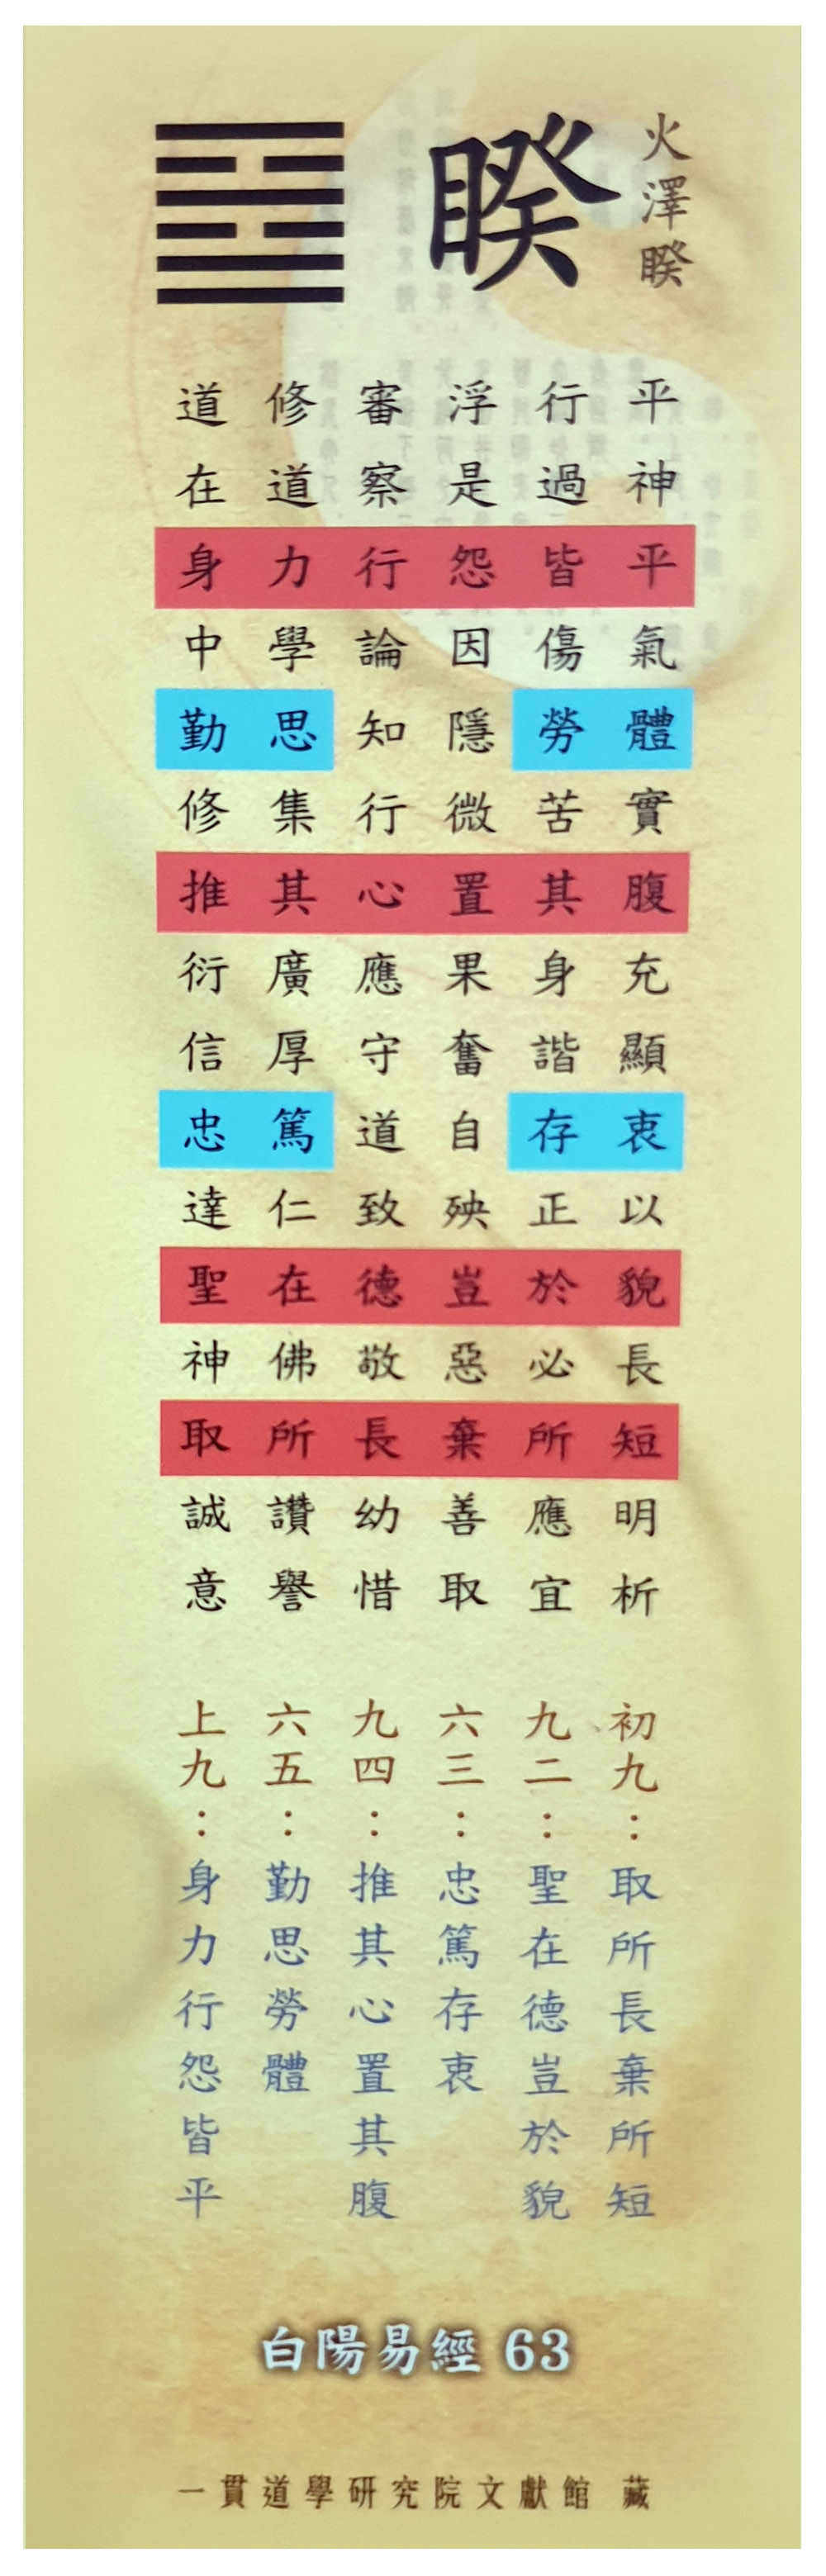 火澤睽
睽
平神平氣體實腹充顯衷以貌長短明析
行過皆傷勞苦其身諧存正於必所應宜
浮是怨因隱微置果奮自殃豈惡棄善取
審察行論知行心應守道致德敬長幼惜
修道力學思集其廣厚篤仁在佛所讚譽
道在身中勤修推衍信忠達聖神取誠意
初九：取所長棄所短
九二：聖在德豈於貌
六三：忠篤存衷
九四：推其心置其腹
六五：勤思勞體
上九：身力行怨皆平
白陽易經 63
一貫道學研究院文獻館 藏